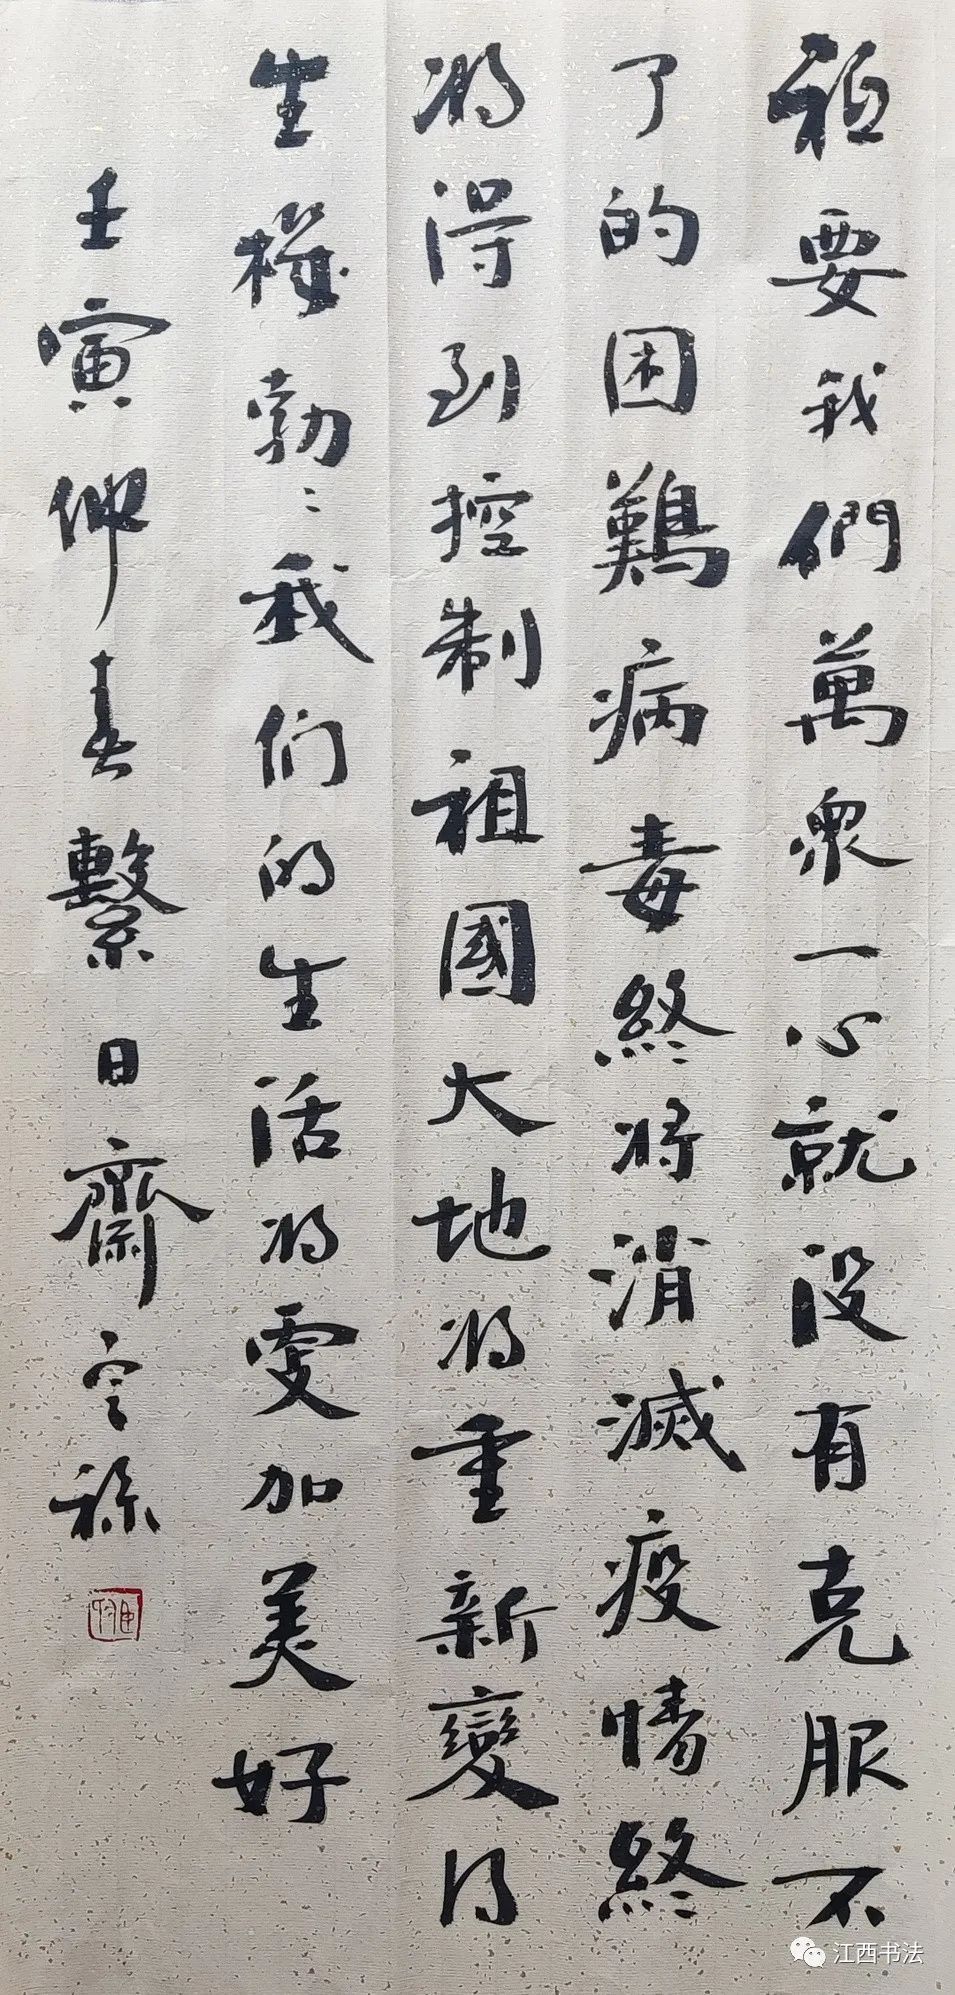 祗要我們萬衆一心就没有克服不
了的困難病毒終将消滅疫情終
将得到控制祖國大地将重新變得
生機勃〻我们的生活将更加美好
壬寅仲春繫日齋
江西书法